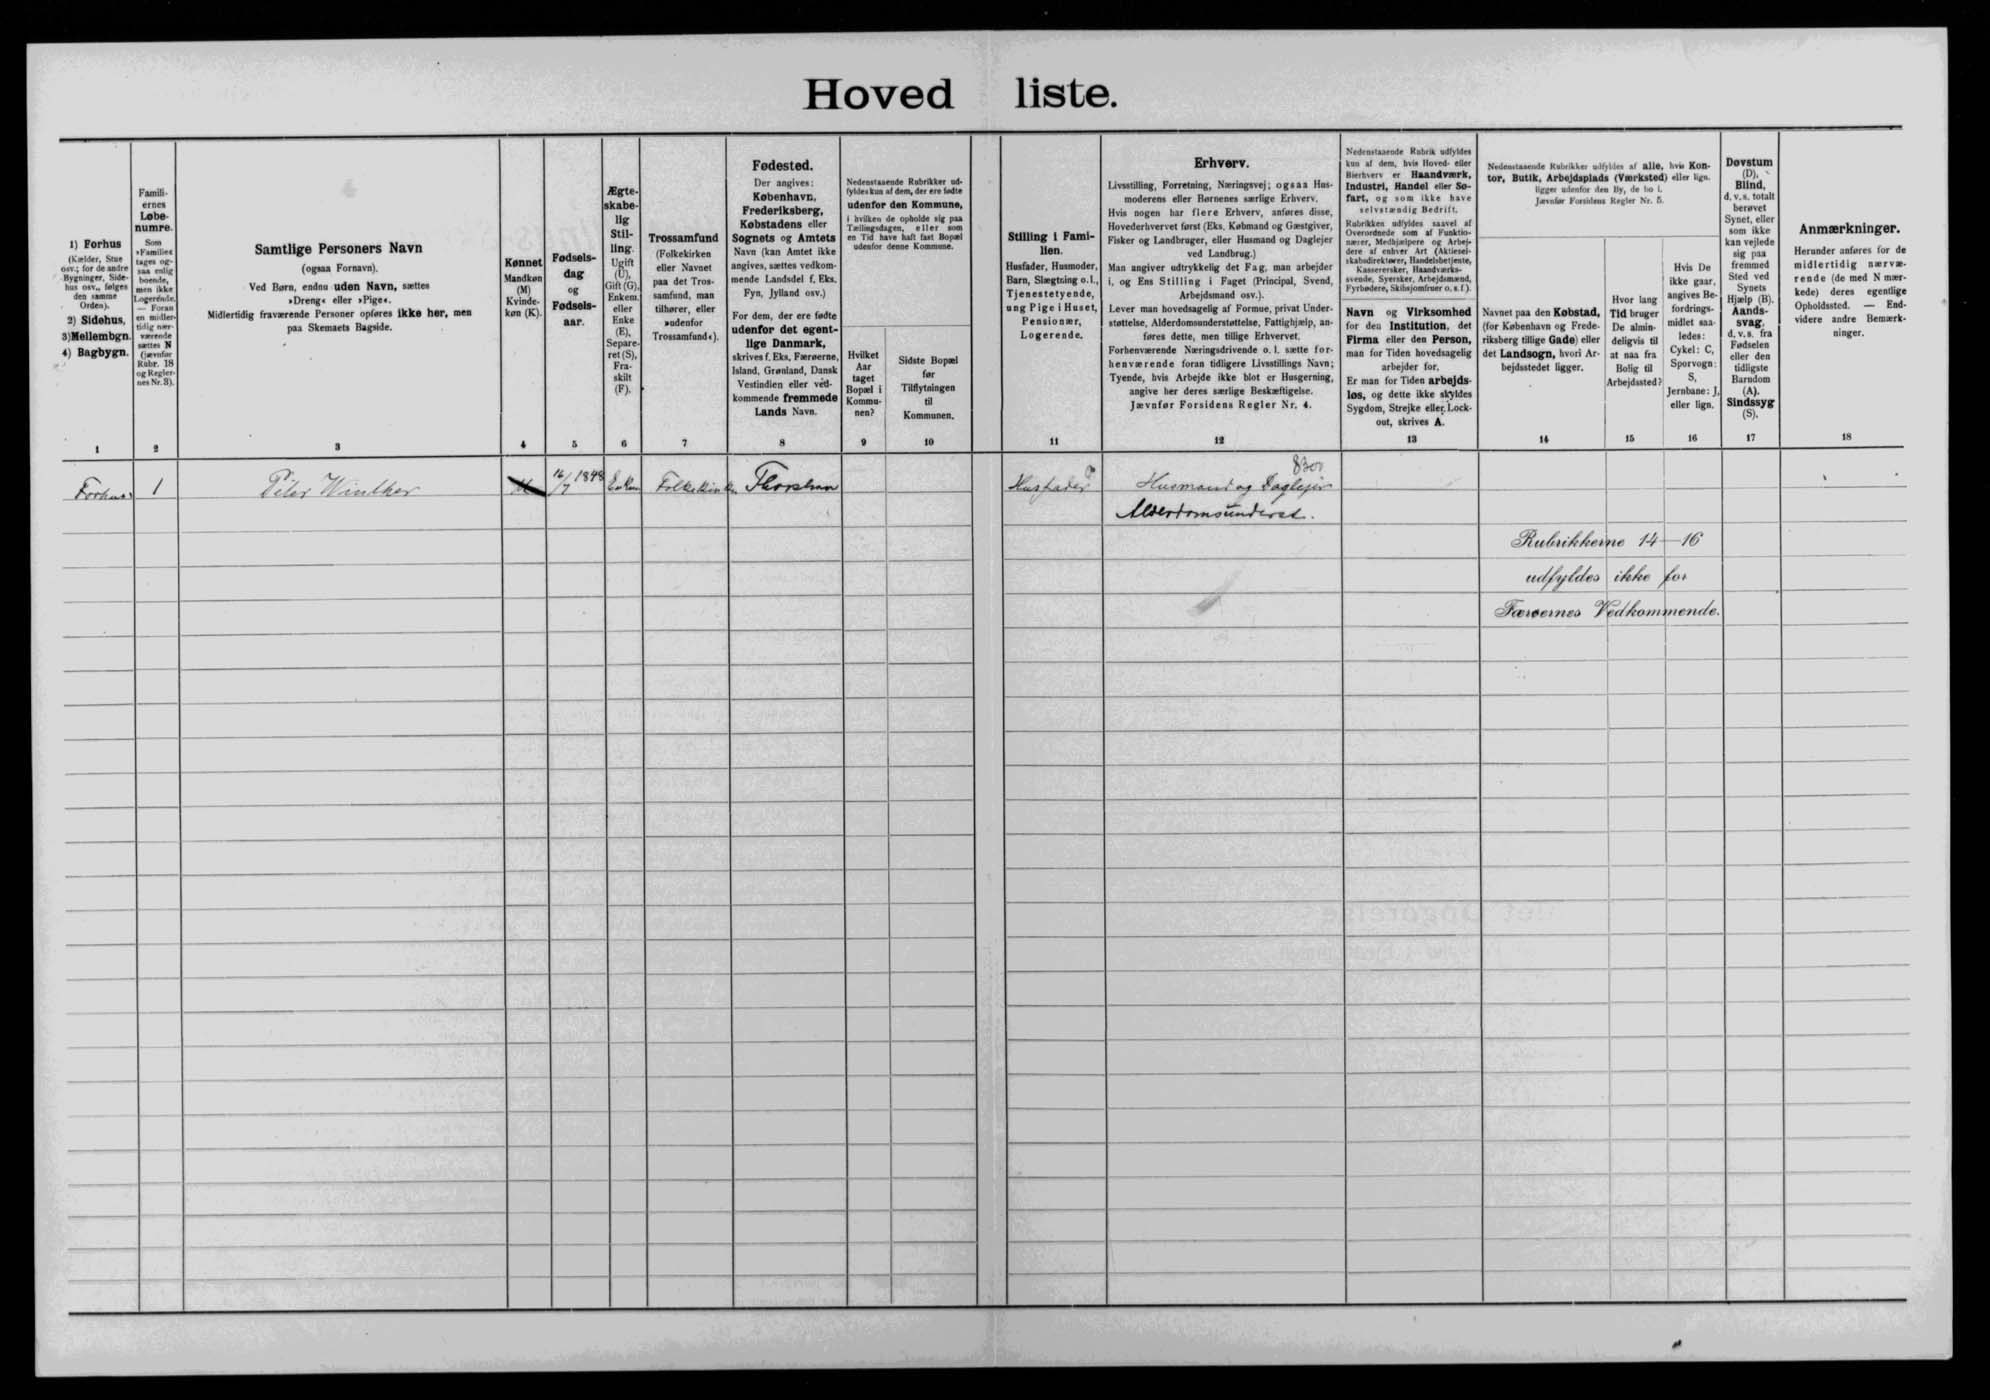 Hoved liste.
1) Forhus
(Kælder, Stue
osv.; for de andre
Bygninger, Side-
hus osv., følges
den samme
Orden).
2) Sidehus,
3) Mellembgn.
4) Bagbygn.
Famili-
ernes
Løbe-
numre.
Som
»Familie«
tages og-
saa enlig
boende,
men ikke
Logerende.
— Foran
en midler-
tidig nær-
værende
sættes N
(jævnfør
Rubr. 18
og Regler-
nes Nr. 3).
Samtlige Personers Navn
(ogsaa Fornavn).
Ved Børn, endnu uden Navn, sættes
»Dreng« eller »Pige«.
Midlertidig fraværende Personer opføres ikke her, men
paa Skemaets Bagside.
Kønnet
Mandkøn
(M)
Kvinde-
køn (K).
Fødsels-
dag
og
Fødsels-
aar.
Ægte-
skabe-
lig
Stil-
ling.
Ugift
(U),
Gift (G),
Enkem.
eller
Enke
(E),
Separe-
ret (S),
Fra-
skilt
(F).
Trossamfund
(Folkekirken
eller Navnet
paa det Tros-
samfund, man
tilhører, eller
»udenfor
Trossamfund«).
Fødested.
Der angives:
København,
Frederiksberg,
Købstadens eller
Sognets og Amtets
Navn (kan Amtet ikke
angives, sættes vedkom-
mende Landsdel f. Eks.
Fyn, Jylland osv.)
For dem, der ere fødte
udenfor det egent-
lige Danmark,
skrives f. Eks. Færøerne,
Island, Grønland, Dansk
Vestindien eller ved-
kommende fremmede
Lands Navn.
Nedenstaaende Rubrikker ud-
fyldes kun af dem, der ere fødte
udenfor den Kommune,
i hvilken de opholde sig paa
Tællingsdagen, eller som
en Tid have haft fast Bopæl
udenfor denne Kommune.
Hvilket
Aar
taget
Bopæl i
Kommu-
nen?
Sidste Bopæl
før
Tilflytningen
til
Kommunen.
Stilling i Fami-
lien.
Husfader, Husmoder,
Barn, Slægtning o.l.,
Tjenestetyende,
ung Pige i Huset,
Pensionær,
Logerende.
Erhverv.
Livsstilling, Forretning, Næringsvej; ogsaa Hus-
moderens eller Børnenes særlige Erhverv.
Hvis nogen har flere Erhverv, anføres disse,
Hovederhvervet først (Eks. Købmand og Gæstgiver,
Fisker og Landbruger, eller Husmand og Daglejer
ved Landbrug.)
Man angiver udtrykkelig det Fag, man arbejder
i, og Ens Stilling i Faget (Principal, Svend,
Arbejdsmand osv.).
Lever man hovedsagelig af Formue, privat Under-
støttelse, Alderdomsunderstøttelse, Fattighjælp, an-
føres dette, men tillige Erhvervet.
Forhenværende Næringsdrivende o. l. sætte for-
henværende foran tidligere Livsstillings Navn;
Tyende, hvis Arbejde ikke blot er Husgerning,
angive her deres særlige Beskæftigelse.
Jævnfør Forsidens Regler Nr. 4.
Nedenstaaende Rubrik udfyldes
kun af dem, hvis Hoved- eller
Bierhverv er Haandværk,
Industri, Handel eller Sø-
fart, og som ikke have
selvstændig Bedrift.
Rubrikken udfyldes saavel af
Overordnede som af Funktio-
nærer, Medhjælpere og Arbej-
dere af enhver Art (Aktiesel-
skabsdirektører, Handelsbetjente,
Kassererer, Haandværks-
svende, Syersker, Arbejdsmænd,
Fyrbødere, Skibsjomfruer o. s. f.).
Navn og Virksomhed
for den Institution, det
Firma eller den Person,
man for Tiden hovedsagelig
arbejder for.
Er man for Tiden arbejds-
løs, og dette ikke skyldes
Sygdom, Strejke eller Lock-
out, skrives A.
Nedenstaaende Rubrikker udfyldes af alle, hvis Kon-
tor, Butik, Arbejdsplads (Værksted) eller lign.
ligger udenfor den By, de bo i.
Jævnfør Forsidens Regler Nr. 5.
Navnet paa den Købstad,
(for København og Frede-
riksberg tillige Gade) eller
det Landsogn, hvori Ar-
bejdsstedet ligger.
Hvor lang
Tid bruger
De almin-
deligvis til
at naa fra
Bolig til
Arbejdssted?
Hvis De
ikke gaar,
angives Be-
fordrings-
midlet saa-
ledes:
Cykel: C,
Sporvogn:
S,
Jernbane: J,
eller lign.
Døvstum
(D),
Blind,
d. v. s. totalt
berøvet
Synet, eller
som ikke
kan vejlede
sig paa
fremmed
Sted ved
Synets
Hjælp (B).
Aands-
svag,
d. v. s. fra
Fødselen
eller den
tidligste
Barndom
(A).
Sindssyg
(S).
Anmærkninger.
Herunder anføres for de
midlertidig nærvæ-
rende (de med N mær-
kede) deres egentlige
Opholdssted. — End-
videre andre Bemærk-
ninger.
1 2 3 4 5 6 7 8 9 10 11 12 13 14 15 16 17 18
8300
Forhus 1 Peter Winther M 16/7 1848 Enkem Folkekirken Thorshavn Husfader Husmand og Daglejer
Alderdomsunderst.
Rubrikkerne 14—16
udfyldes ikke for
Færøernes Vedkommende.